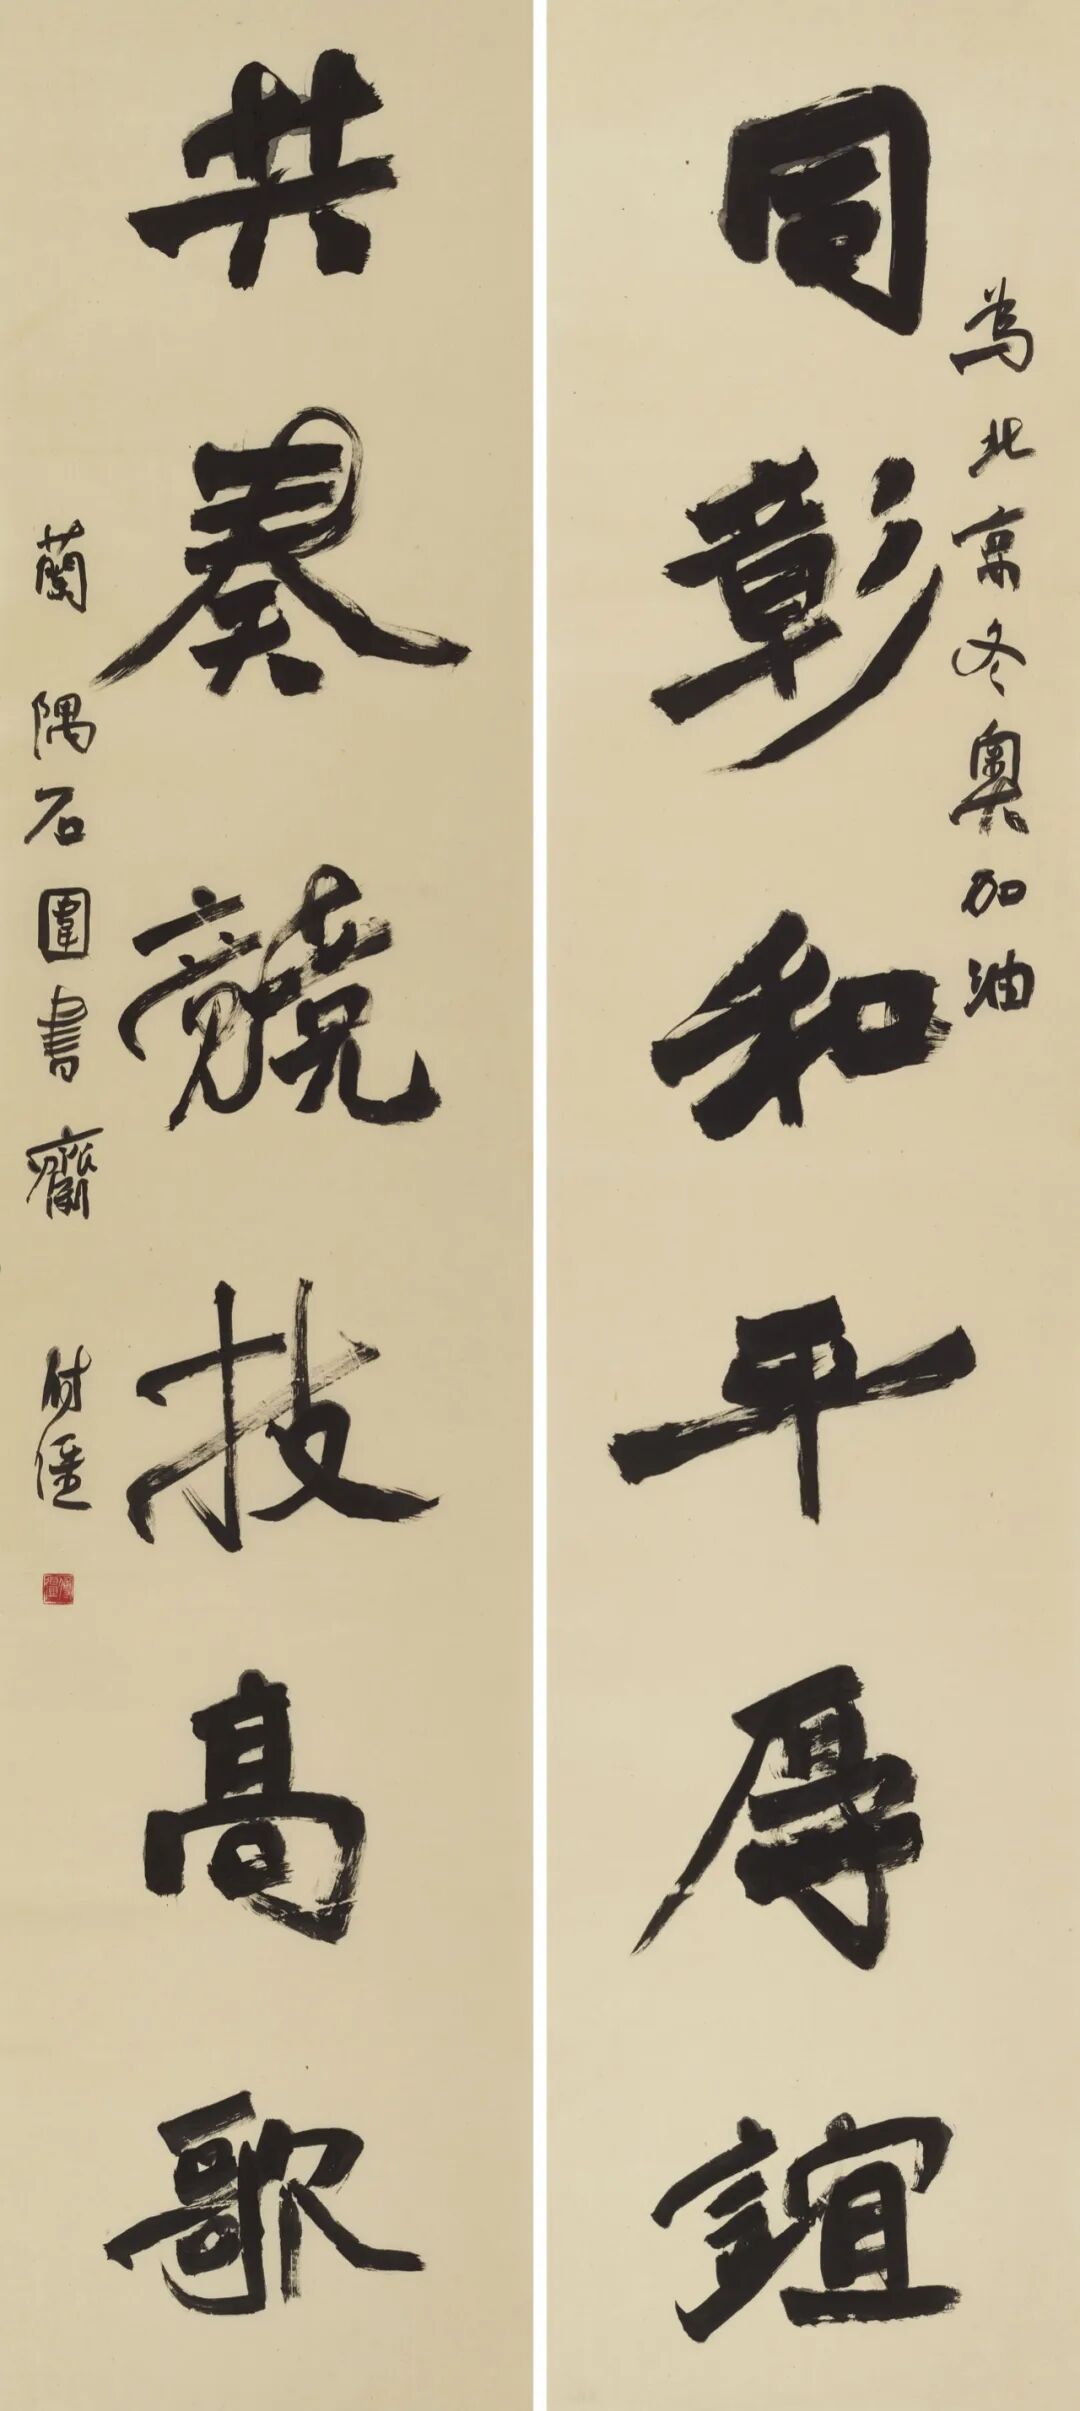 為北京冬奧加油
同彰和平厚誼
共奏競技高歌
蘭隅石圍書齋